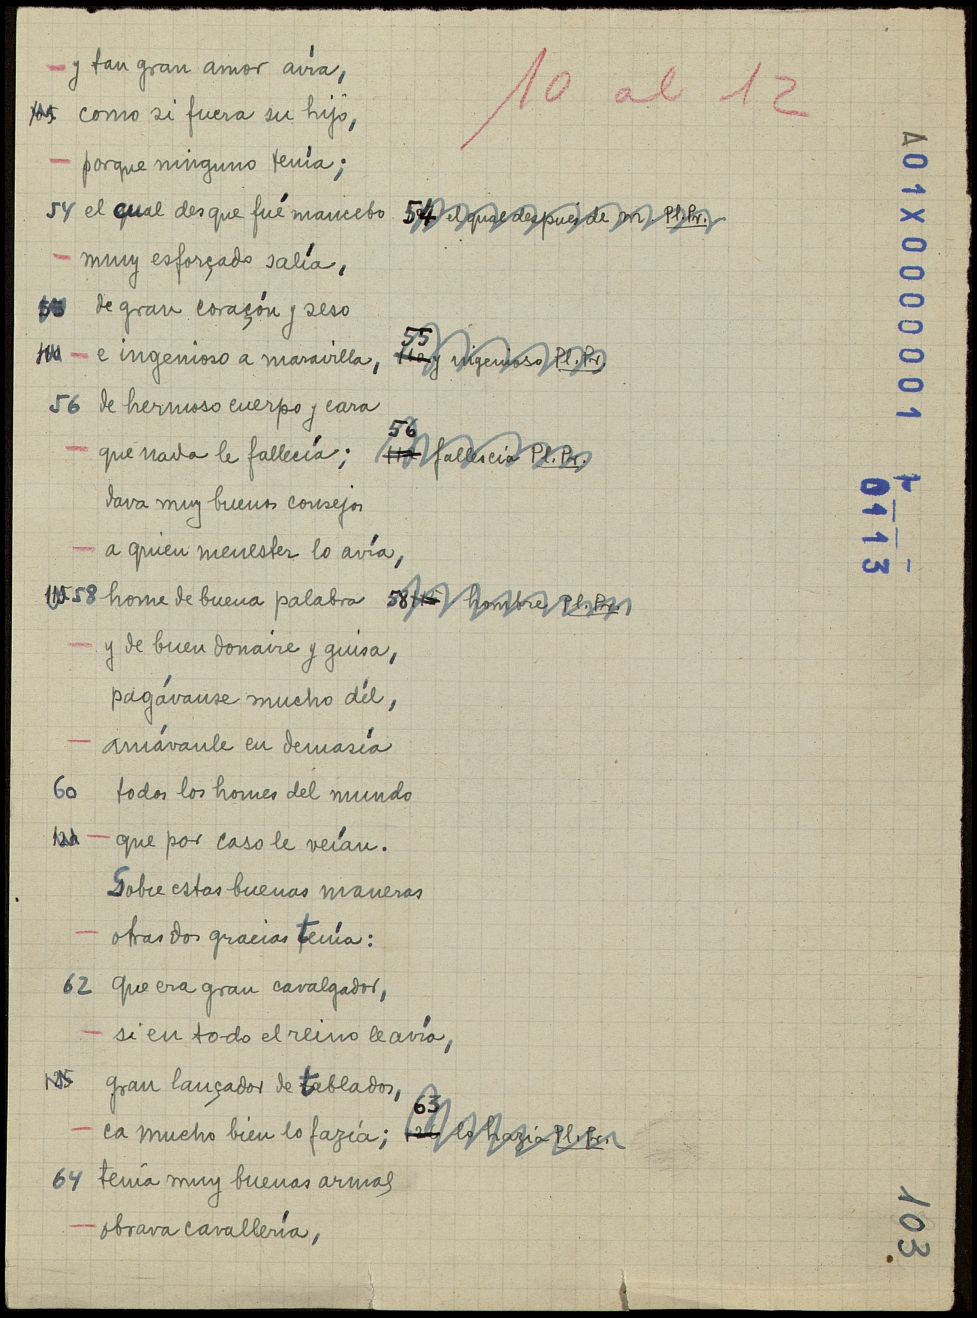 10 al 12
— y tan gran amor avía,
como si fuera su hijo,
— porque ninguno tenía;
54 el qual desque fué mancebo 54 el qual después de m. Pl. Pr.
— muy esforçado salía,
de gran coraçón y seso
— e ingenioso a maravilla, 55 110 y ingenioso Pl. Pr.
56 de hermoso cuerpo y cara
— que nada le fallecía; 56 112 fallescía Pl. Pr.
dava muy buenos consejos
— a quien menester lo avía,
115 58 home de buena palabra 58 115 hombre Pl. Pr.
— y de buen donaire y guisa,
pagávanse mucho dél,
— amávanle en demasía
60 todos los homes del mundo
121 — que por caso le veían.
Sobre estas buenas maneras
— otras dos gracias tenía:
62 que era gran cavalgador,
— si en todo el reino le avía,
125 gran lançador de tablados,
— ca mucho bien lo fazía; 63 126 lo hazía Pl. Pr.
64 tenía muy buenas armas
— obrava cavallería,
A01X0000001
0113
103